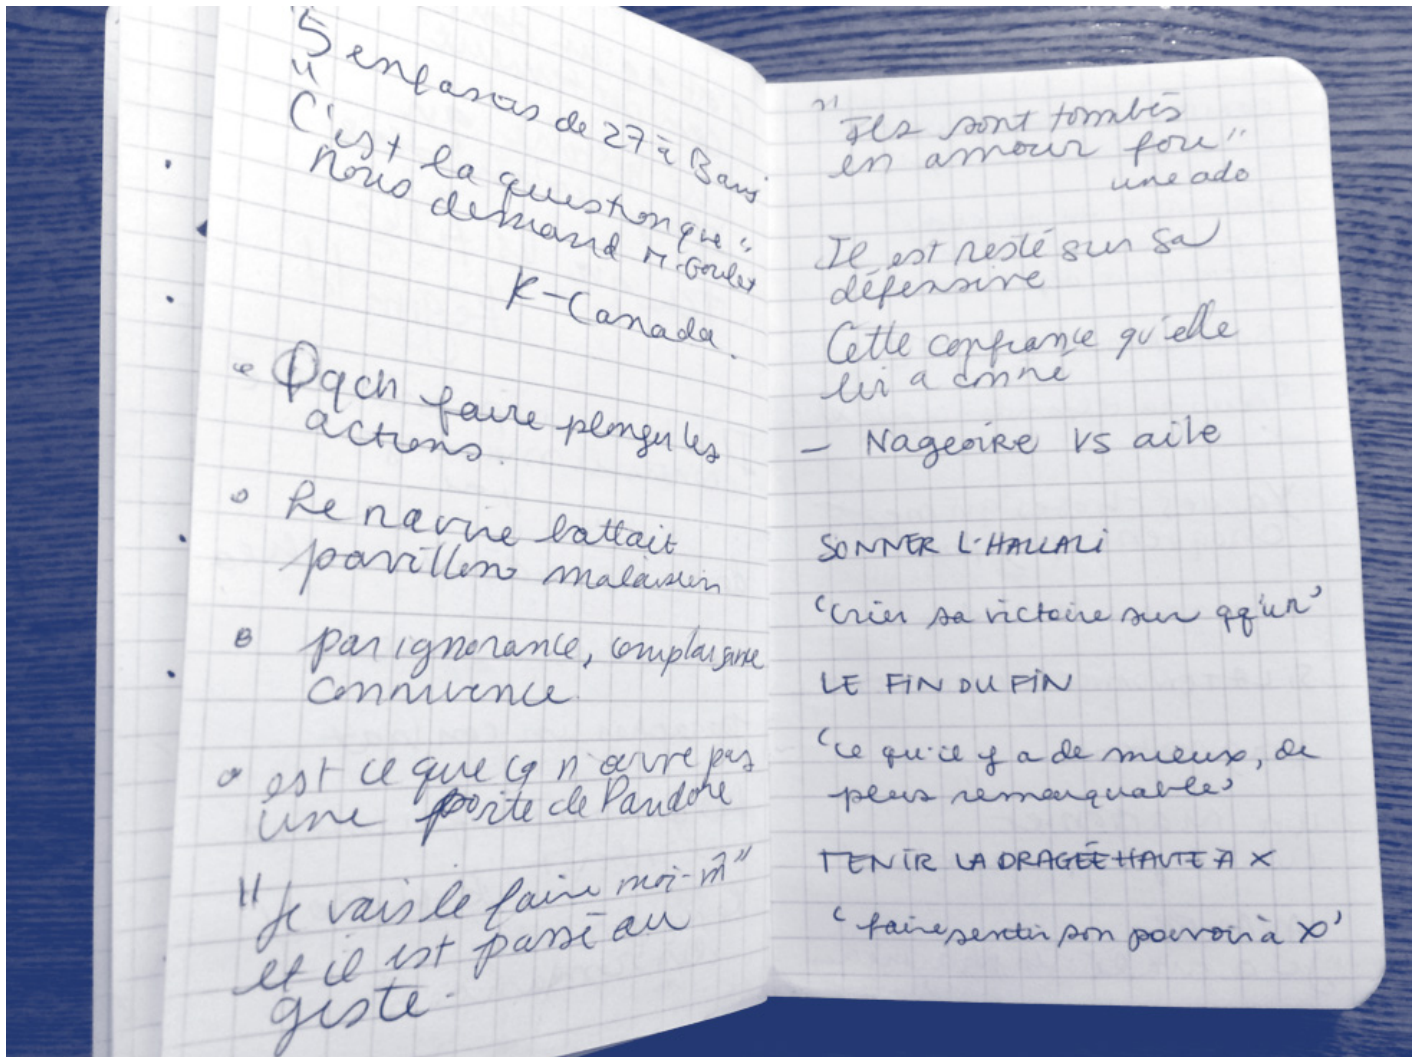 "5 enfants de 27 à 3 ans
"C'est la question que"
nous demand M. Goulet
K-Canada.
Qqch faire plonger les
actions.
Le navire battait
pavillon malaisien
par ignorance, complaisance
connivence.
est ce que ça n'ouvre pas
une porte de Pandore
"Je vais le faire moi-m̂"
et il est passé au
geste.
"Ils sont tombés
en amour fou"
une ado
Il est resté sur sa
défensive
Cette confiance qu'elle
lui a donné
- Nageoire vs aile
SONNER L'HALLALI
'crier sa victoire sur qq'un'
LE FIN DU FIN
'ce qu'il y a de mieux, de
plus remarquable'
TENIR LA DRAGÉE HAUTE À X
'faire sentir son pouvoir à X'